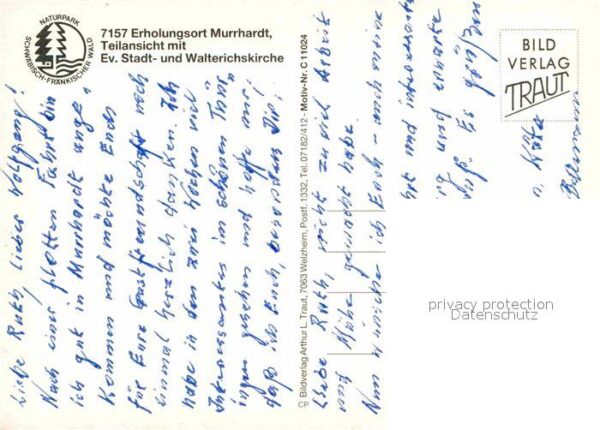 NATURPARK
SCHWÄBISCH-FRÄNKISCHER WALD
7157 Erholungsort Murrhardt,
Teilansicht mit
Ev. Stadt- und Walterichskirche
BILD
VERLAG
TRAUT
Liebe Ruth, lieber Wolfgang!
Nach einer flotten Fahrt bin
ich gut in Murrhardt ange-
kommen und möchte Euch
für Eure Gastfreundschaft noch
einmal herzlich danken. Ich
habe in den zwei Wochen viel
Interessantes im schönen
gesehen und hoffe nur,
daß ich Euch, besonders Dir,
liebe Ruth, nicht zuviel Arbeit
und Mühe gemacht habe.
Nun wünsche ich Euch - auch meine
und interessante
und
Es grüßen
CP Bildverlag Arthur L. Traut, 7063 Welzheim, Postf. 1332, Tel. 07182/412 - Motiv-Nr. C 11024
privacy protection
Datenschutz